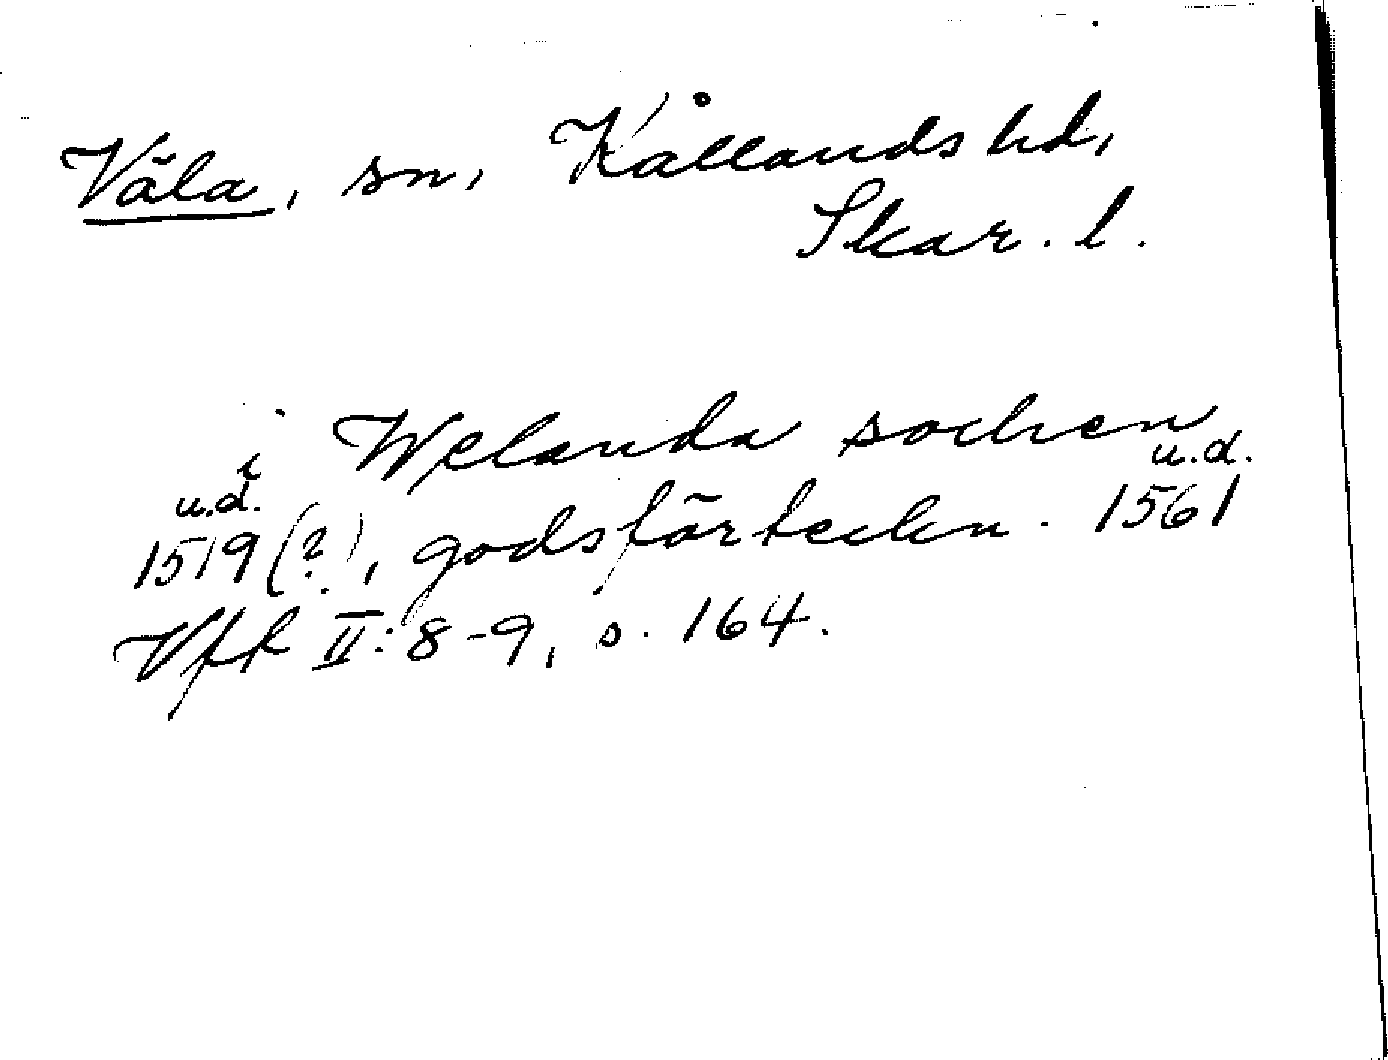 Väla, sn, Kållands hd,
Skar. l.
i Welanda sochen
u.d. u.d.
1519 (?), godsförteckn. 1561
Vfk II: 8-9, s. 164.